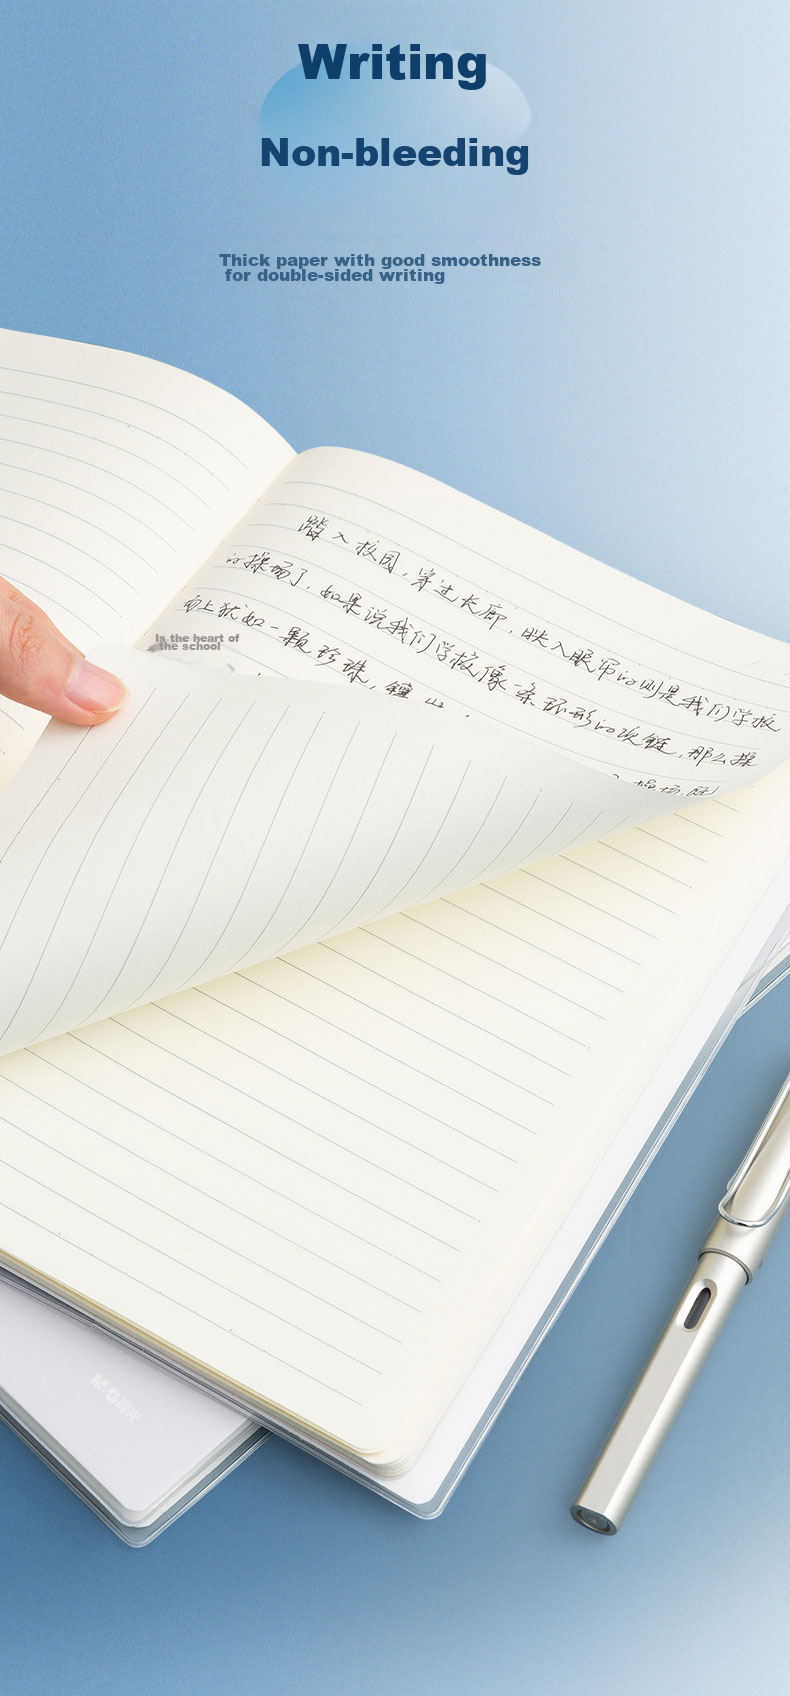 Writing
Non-bleeding
Thick paper with good smoothness
for double-sided writing
踏入校园，穿过长廊，映入眼帘的则是我们学校
的操场了，如果说我们学校像一条环形的项链，那么操
Is the heart of
the school
犹如一颗珍珠，镶
M&G晨光